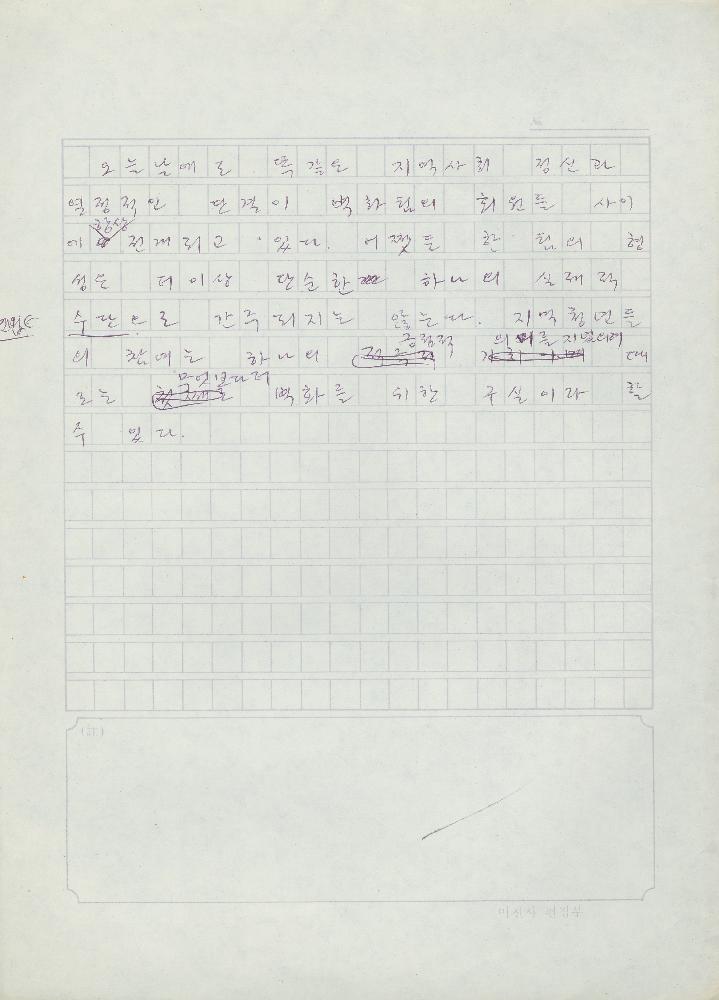 오늘날에도 똑같은 지역사회 정신과
열정적인 단결이 벽화팀의 회원들 사이
항상
에 전개되고 있다. 어쨌든 한 팀의 형
성은 더이상 단순한 하나의 실제적
수단으로 간주되지는 않는다. 지역청년들
긍정적 의의를 지녔으며
의 참여는 하나의
무엇보다더
로는 벽화를 위한 구실이라 할
수 있다.
(註)
미진사 편집부